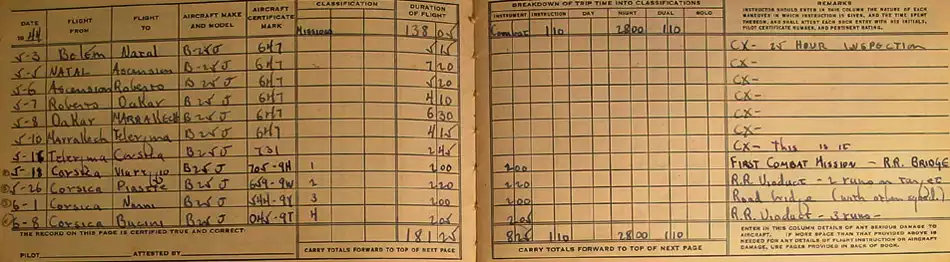 DATE
19 44
FLIGHT FROM
FLIGHT TO
AIRCRAFT MAKE AND MODEL
AIRCRAFT CERTIFICATE MARK
CLASSIFICATION
DURATION OF FLIGHT
BREAKDOWN OF TRIP TIME INTO CLASSIFICATIONS
INSTRUMENT INSTRUCTION DAY NIGHT DUAL SOLO
REMARKS
INSTRUCTOR SHOULD ENTER IN THIS COLUMN THE NATURE OF EACH
MANEUVER IN WHICH INSTRUCTION IS GIVEN, AND THE TIME SPENT
THEREON, AND SHALL ATTEST EACH SUCH ENTRY WITH HIS INITIALS,
PILOT CERTIFICATE NUMBER, AND PERTINENT RATING.
Missions 138 05 Combat 1 10 28 00 1 10
5-3 Belém Natal B-25J 647 5 15 CX- 25 HOUR INSPECTION
5-5 NATAL Ascension B-25J 647 7 20 CX-
5-6 Ascension Roberts B 25 J 647 5 20 CX-
5-7 Roberts Dakar B 25 J 647 4 10 CX-
5-8 Dakar MARRAKECH B 25 J 647 6 30 CX-
5-10 Marrakech Telergma B25J 647 4 15 CX-
Telergma Corsica B25J 731 2 45 CX- This is it
5-18 Corsica B25J 705-9H 1 2 00 2 00 FIRST COMBAT MISSION - R.R. BRIDGE
5-26 Corsica B25J 659-9W 2 2 20 2 20 R.R. Viaduct - 2 runs on target
6-1 Corsica Narni B25J 3 2 00 2 00 Road bridge
6-8 Corsica Bucine B25J 4 2 05 2 05 R.R. Viaduct - 3 runs -
181 25 8 25 1 10 28 00 1 10
THE RECORD ON THIS PAGE IS CERTIFIED TRUE AND CORRECT:
PILOT ATTESTED BY
CARRY TOTALS FORWARD TO TOP OF NEXT PAGE
CARRY TOTALS FORWARD TO TOP OF NEXT PAGE
ENTER IN THIS COLUMN DETAILS OF ANY SERIOUS DAMAGE TO
AIRCRAFT. IF MORE SPACE THAN THAT PROVIDED ABOVE IS
NEEDED FOR ANY DETAILS OF FLIGHT INSTRUCTION OR AIRCRAFT
DAMAGE, USE PAGES PROVIDED IN BACK OF BOOK.